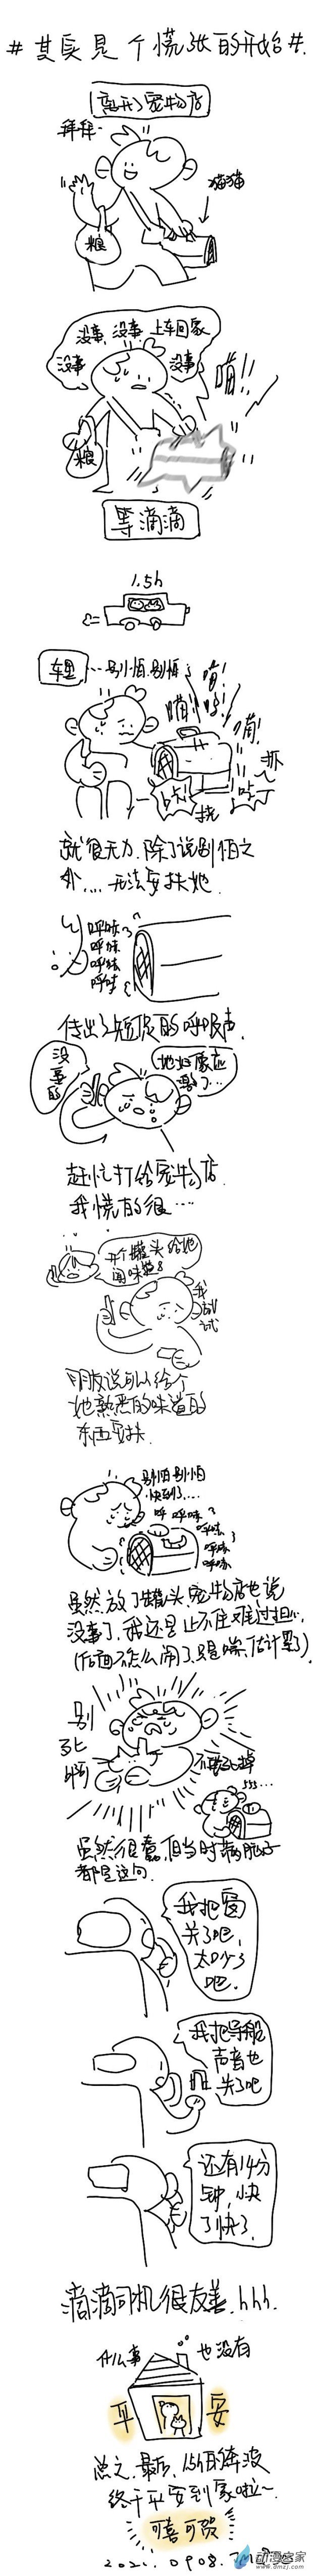 #其实是个慌张的开始#
离开了宠物店
拜拜~
猫猫
粮
没事、没事 上车回家
没事
没事
喵!!
粮
等滴滴
1.5h
车里
…别怕.别怕
喵!
喵!
喵!
抓
挠
就很无力.除了说别怕之
外....无法安抚她.
呼哧
呼哧
呼哧
呼哧
传出了短促的呼吸声.
没事的
她好像应激了...
赶忙打给宠物店.
我慌的很....
开个罐头给她
闻味道
我试试
朋友说可以给个
她熟悉的味道的
东西安抚.
别怕别怕
快到了....
呼 呼哧
呼哧
呼哧
呼哧
虽然放了罐头,宠物店也说
没事了,我还是止不住难过担心.
(后面不怎么闹了只是喘,估计累了)
别
死
啊
不要死掉
虽然很蠢,但当时满脑子
都是这句.
我把窗
关了吧,
太吵了
吧.
我把导航
声音也
关了吧
还有14分
钟,快
了快了.
滴滴司机很友善.hhh.
什么事
也没有
平
安
总之.最后.1.5h的奔波
终于平安到家啦~
可喜可贺
2021.0908.
动漫之家
www.dmzj.com